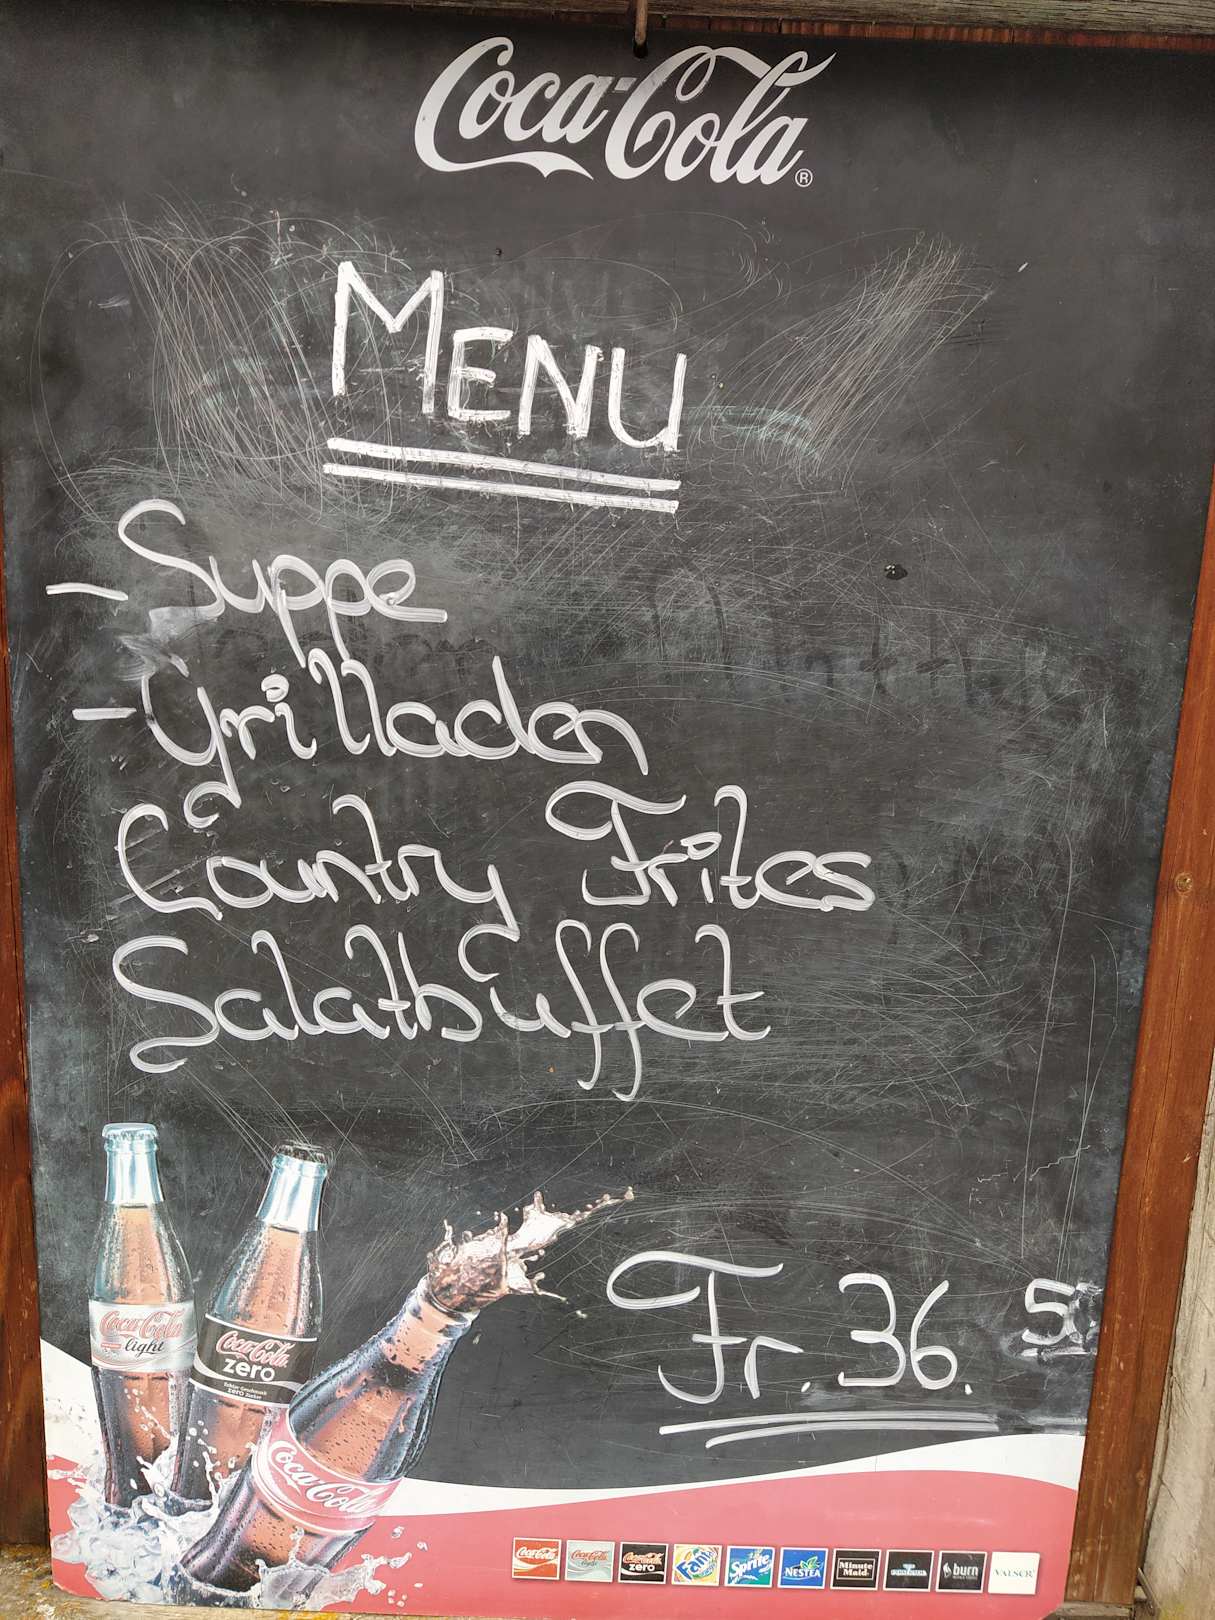 Coca-Cola®
MENU
- Suppe
- Grilladen
Country Frites
Salatbuffet
Fr. 36. 50
Coca-Cola
light
Coca-Cola
zero
Coca-Cola
Coca-Cola
Coca-Cola
light
Coca-Cola
zero
Fanta
Sprite
NESTEA
Minute Maid
burn
VALSER